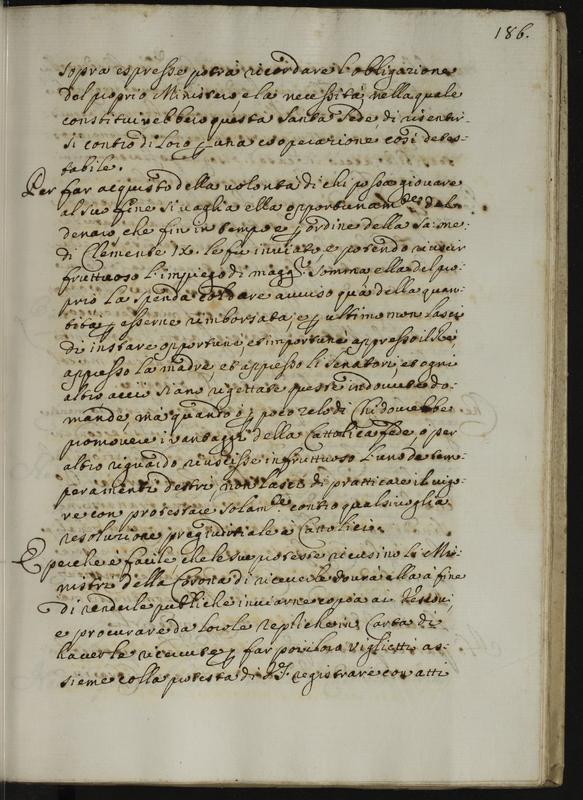 186.
sopra espresse potrà ricordare l'obligazione
del proprio Ministero, e la necessità, nella quale
constituirebbero questa Santa Sede, di risentir-
si contro di loro p una cooperazione così detes-
tabile.
Per far acquisto della volontà di chi possa giovare
al suo fine si vaglia ella opportunam.te del
denaro che fin in tempo, e p ordine della Sa: me:
di Clemente IX. le fu inviato, e potendo riuscir
fruttuoso l'impiego di magg.r somma ella del pro-
prio la spenda col dare avviso quà della quan-
tità p esserne rimborsata; e p ultimo non lasci
di instare opportunè, et importunè appresso il Rè
appresso la madre et appresso li Senatori, et ogni
altro acciò siano rigettate queste indovute do-
mande, ma quando ò p poco zelo di chi dovrebbe
promovere i vantaggi della Cattolica fede, ò per
altro riguardo riuscisse infruttuoso l'uso de tem-
peramenti destri, non lasci di pratticare il vigo-
re con protestare solam.te contro qualsivoglia
resoluzione pregiuditiale à Cattolici.
E perche è facile che le sue proteste ricusino li Mi-
nistri della Corona di riceverle dovrà ella à fine
di renderle publiche inviarne copia ai
e procurare da loro le repliche in Carta di
haverle ricevute, p far poi i loro viglietti as-
sieme colla protesta di registrare con atti